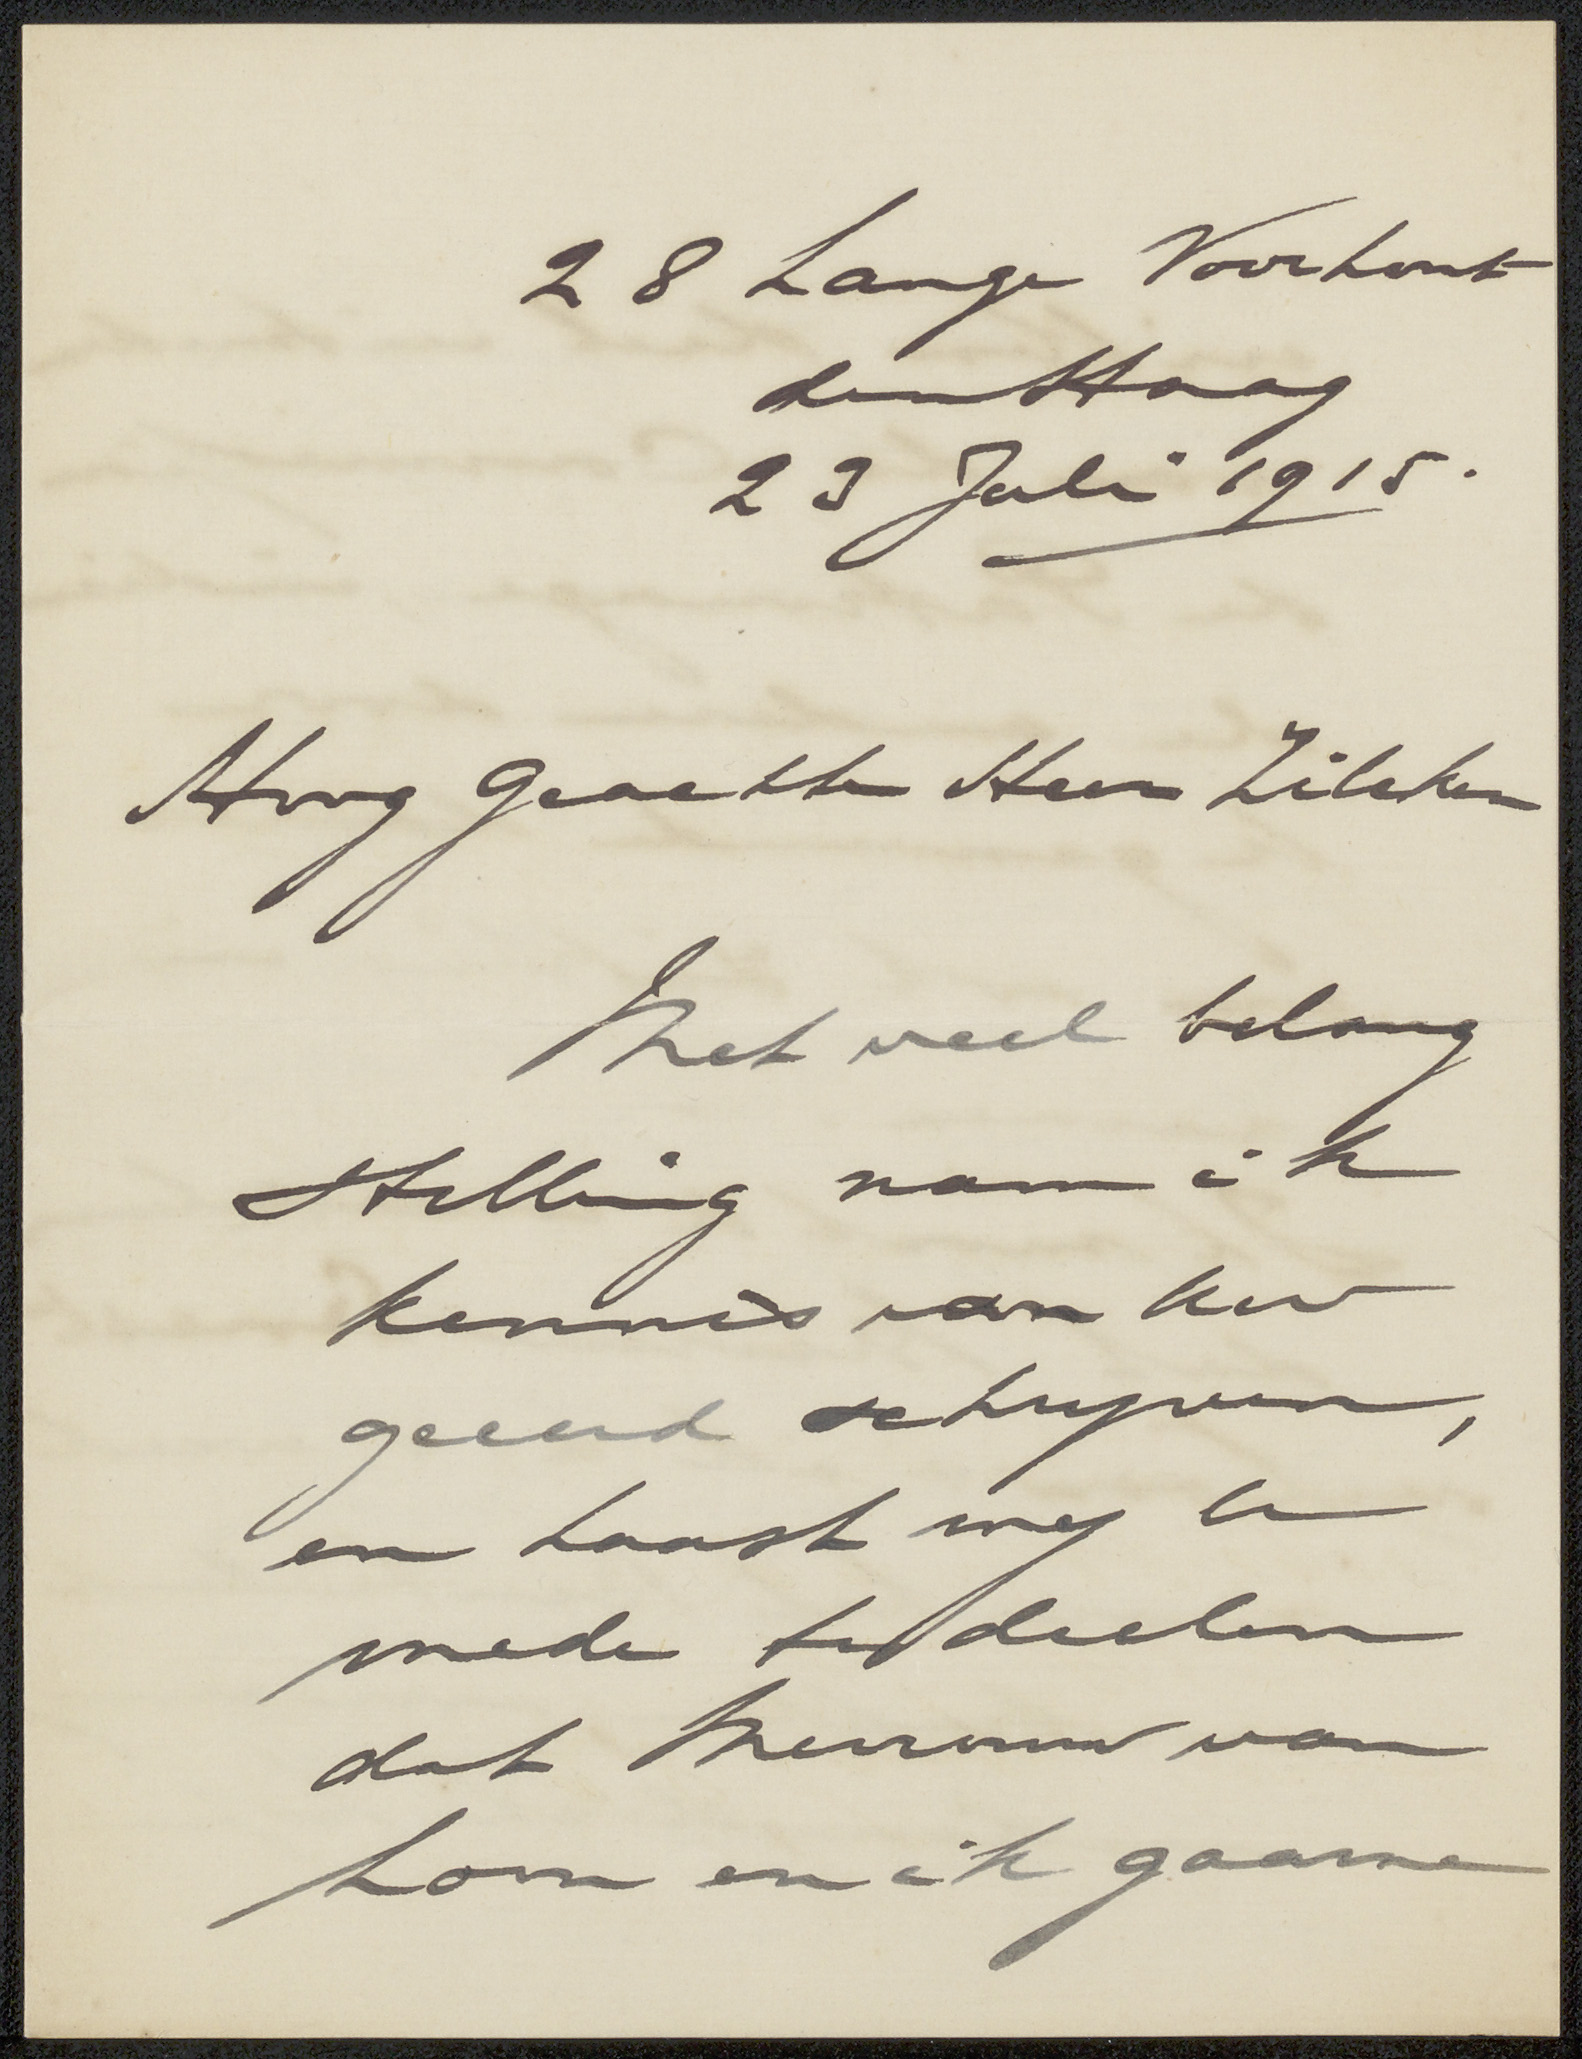 28 Lange Voorhout
den Haag
23 Juli 1915.
Hoog geachte Heer Zilcken
Met veel belang
stelling nam ik
kennis van Uw
geeerd schrijven,
en haast mij U
mede te deelen
dat Mevrouw van
Loon en ik gaarne